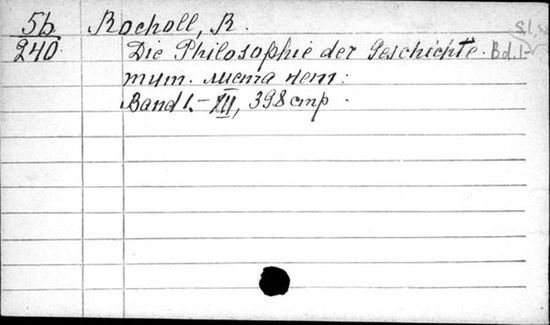 5b Rocholl, R. S.l.,
240 Die Philosophie der Geschichte. Bd. I-
тит. листа нет:
Band I.-XII, 398 стр.